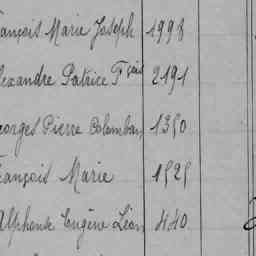 ançois Marie Joseph 1998
lexandre Patrice Fçois 2191
eorges Pierre Colomban 1350
rançois Marie 1525
Alphonse Eugène Léon 440